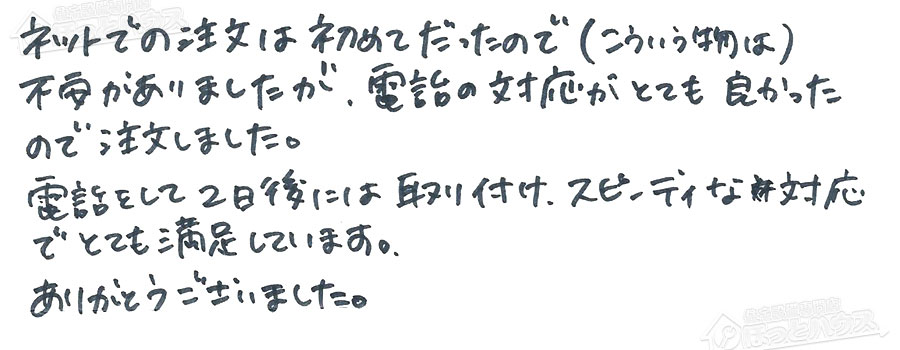 ネットでの注文は初めてだったので(こういう物は)
不安がありましたが、電話の対応がとても良かった
ので注文しました。
電話をして2日後には取り付け、スピンディな対応
でとても満足しています。
ありがとうございました。
ほっとハウス